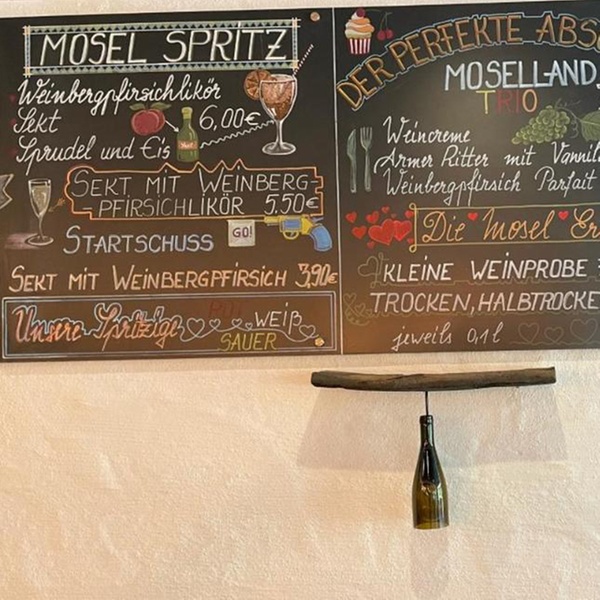 MOSEL SPRITZ
Weinbergpfirsichlikör
Sekt 6,00€
Sprudel und Eis
SEKT MIT WEINBERG-
-PFIRSICHLIKÖR 5,50€
STARTSCHUSS GO!
SEKT MIT WEINBERGPFIRSICH 3,90€
Unsere Spritzige ROT WEIß
SAUER
DER PERFEKTE ABS
MOSELLAND
TRIO
Weincreme
Armer Ritter mit Vanill
Weinbergpfirsich Parfait
Die Mosel Er
KLEINE WEINPROBE
TROCKEN, HALBTROCKE
jeweils 0,1 l